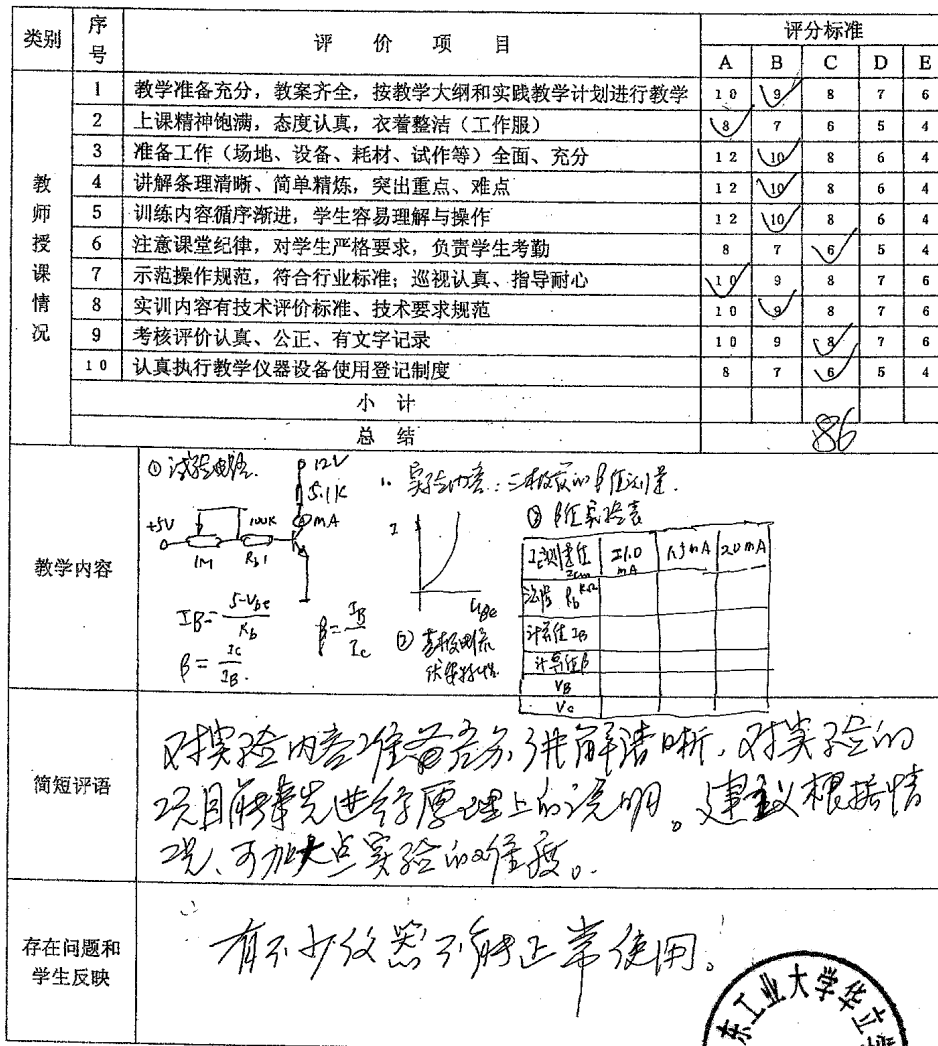 类别 序号 评价项目 评分标准
A B C D E
教师授课情况
1 教学准备充分，教案齐全，按教学大纲和实践教学计划进行教学 10 9 8 7 6
2 上课精神饱满，态度认真，衣着整洁（工作服） 8 7 6 5 4
3 准备工作（场地、设备、耗材、试作等）全面、充分 12 10 8 6 4
4 讲解条理清晰、简单精炼，突出重点、难点 12 10 8 6 4
5 训练内容循序渐进，学生容易理解与操作 12 10 8 6 4
6 注意课堂纪律，对学生严格要求，负责学生考勤 8 7 6 5 4
7 示范操作规范，符合行业标准；巡视认真、指导耐心 10 9 8 7 6
8 实训内容有技术评价标准、技术要求规范 10 9 8 7 6
9 考核评价认真、公正、有文字记录 10 9 8 7 6
10 认真执行教学仪器设备使用登记制度 8 7 6 5 4
小计
总结 86
教学内容
① 试验电路. 12V
5.1K 实验内容：三极管的β值测量.
mA
+5V 100K I ③ β值实验表
1M Rb1
Ic测量值 1.0 mA 1.5mA 2.0mA
Rb KΩ
IB= 5-Vbe / Rb UBe
计算值 IB
β= Ic / IB. β= IB / Ic ② 基极电流
计算值β
伏安特性.
VB
Vc
简短评语
对实验内容准备充分，讲解清晰，对实验的
项目能事先进行原理上的说明。建议根据情
况、可加大点实验的难度。
存在问题和学生反映
有不少仪器不能正常使用。
东工业大学华立